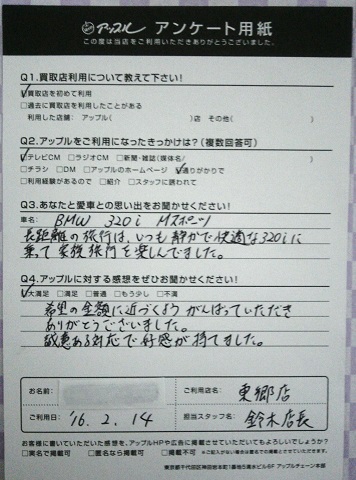 アップル アンケート用紙
この度は当店をご利用いただきありがとうございました。
Q1.買取店利用について教えて下さい!
☑買取店を初めて利用
□過去に買取店を利用したことがある
利用した店舗: アップル( )店 その他( )
Q2.アップルをご利用になったきっかけは?(複数回答可)
☑テレビCM □ラジオCM □新聞・雑誌(媒体名/ )
□チラシ □DM □アップルのホームページ ☑通りがかりで
□利用経験があるので □紹介 □スタッフに誘われて
Q3.あなたと愛車との思い出をお聞かせください!
車名: BMW 320i Mスポーツ
長距離の旅行は、いつも静かで快適な320iに
乗って家族で楽しんでました。
Q4.アップルに対する感想をぜひお聞かせください!
☑大満足 □満足 □普通 □もう少し □不満
希望の金額に近づくようがんばっていただき
ありがとうございました。
誠意ある対応で好感が持てました。
お名前:
ご利用店名: 東郷店
ご利用日: '16. 2. 14
担当スタッフ名: 鈴木店長
お客様に書いていただいた感想を、アップルHPや広告に掲載させていただいてもよろしいでしょうか?
□実名で掲載可 □匿名なら掲載可 □掲載不可 ※ご記入がない場合は匿名での掲載とさせていただきます。
東京都千代田区神田岩本町1番地5清水ビル6F アップルチェーン本部